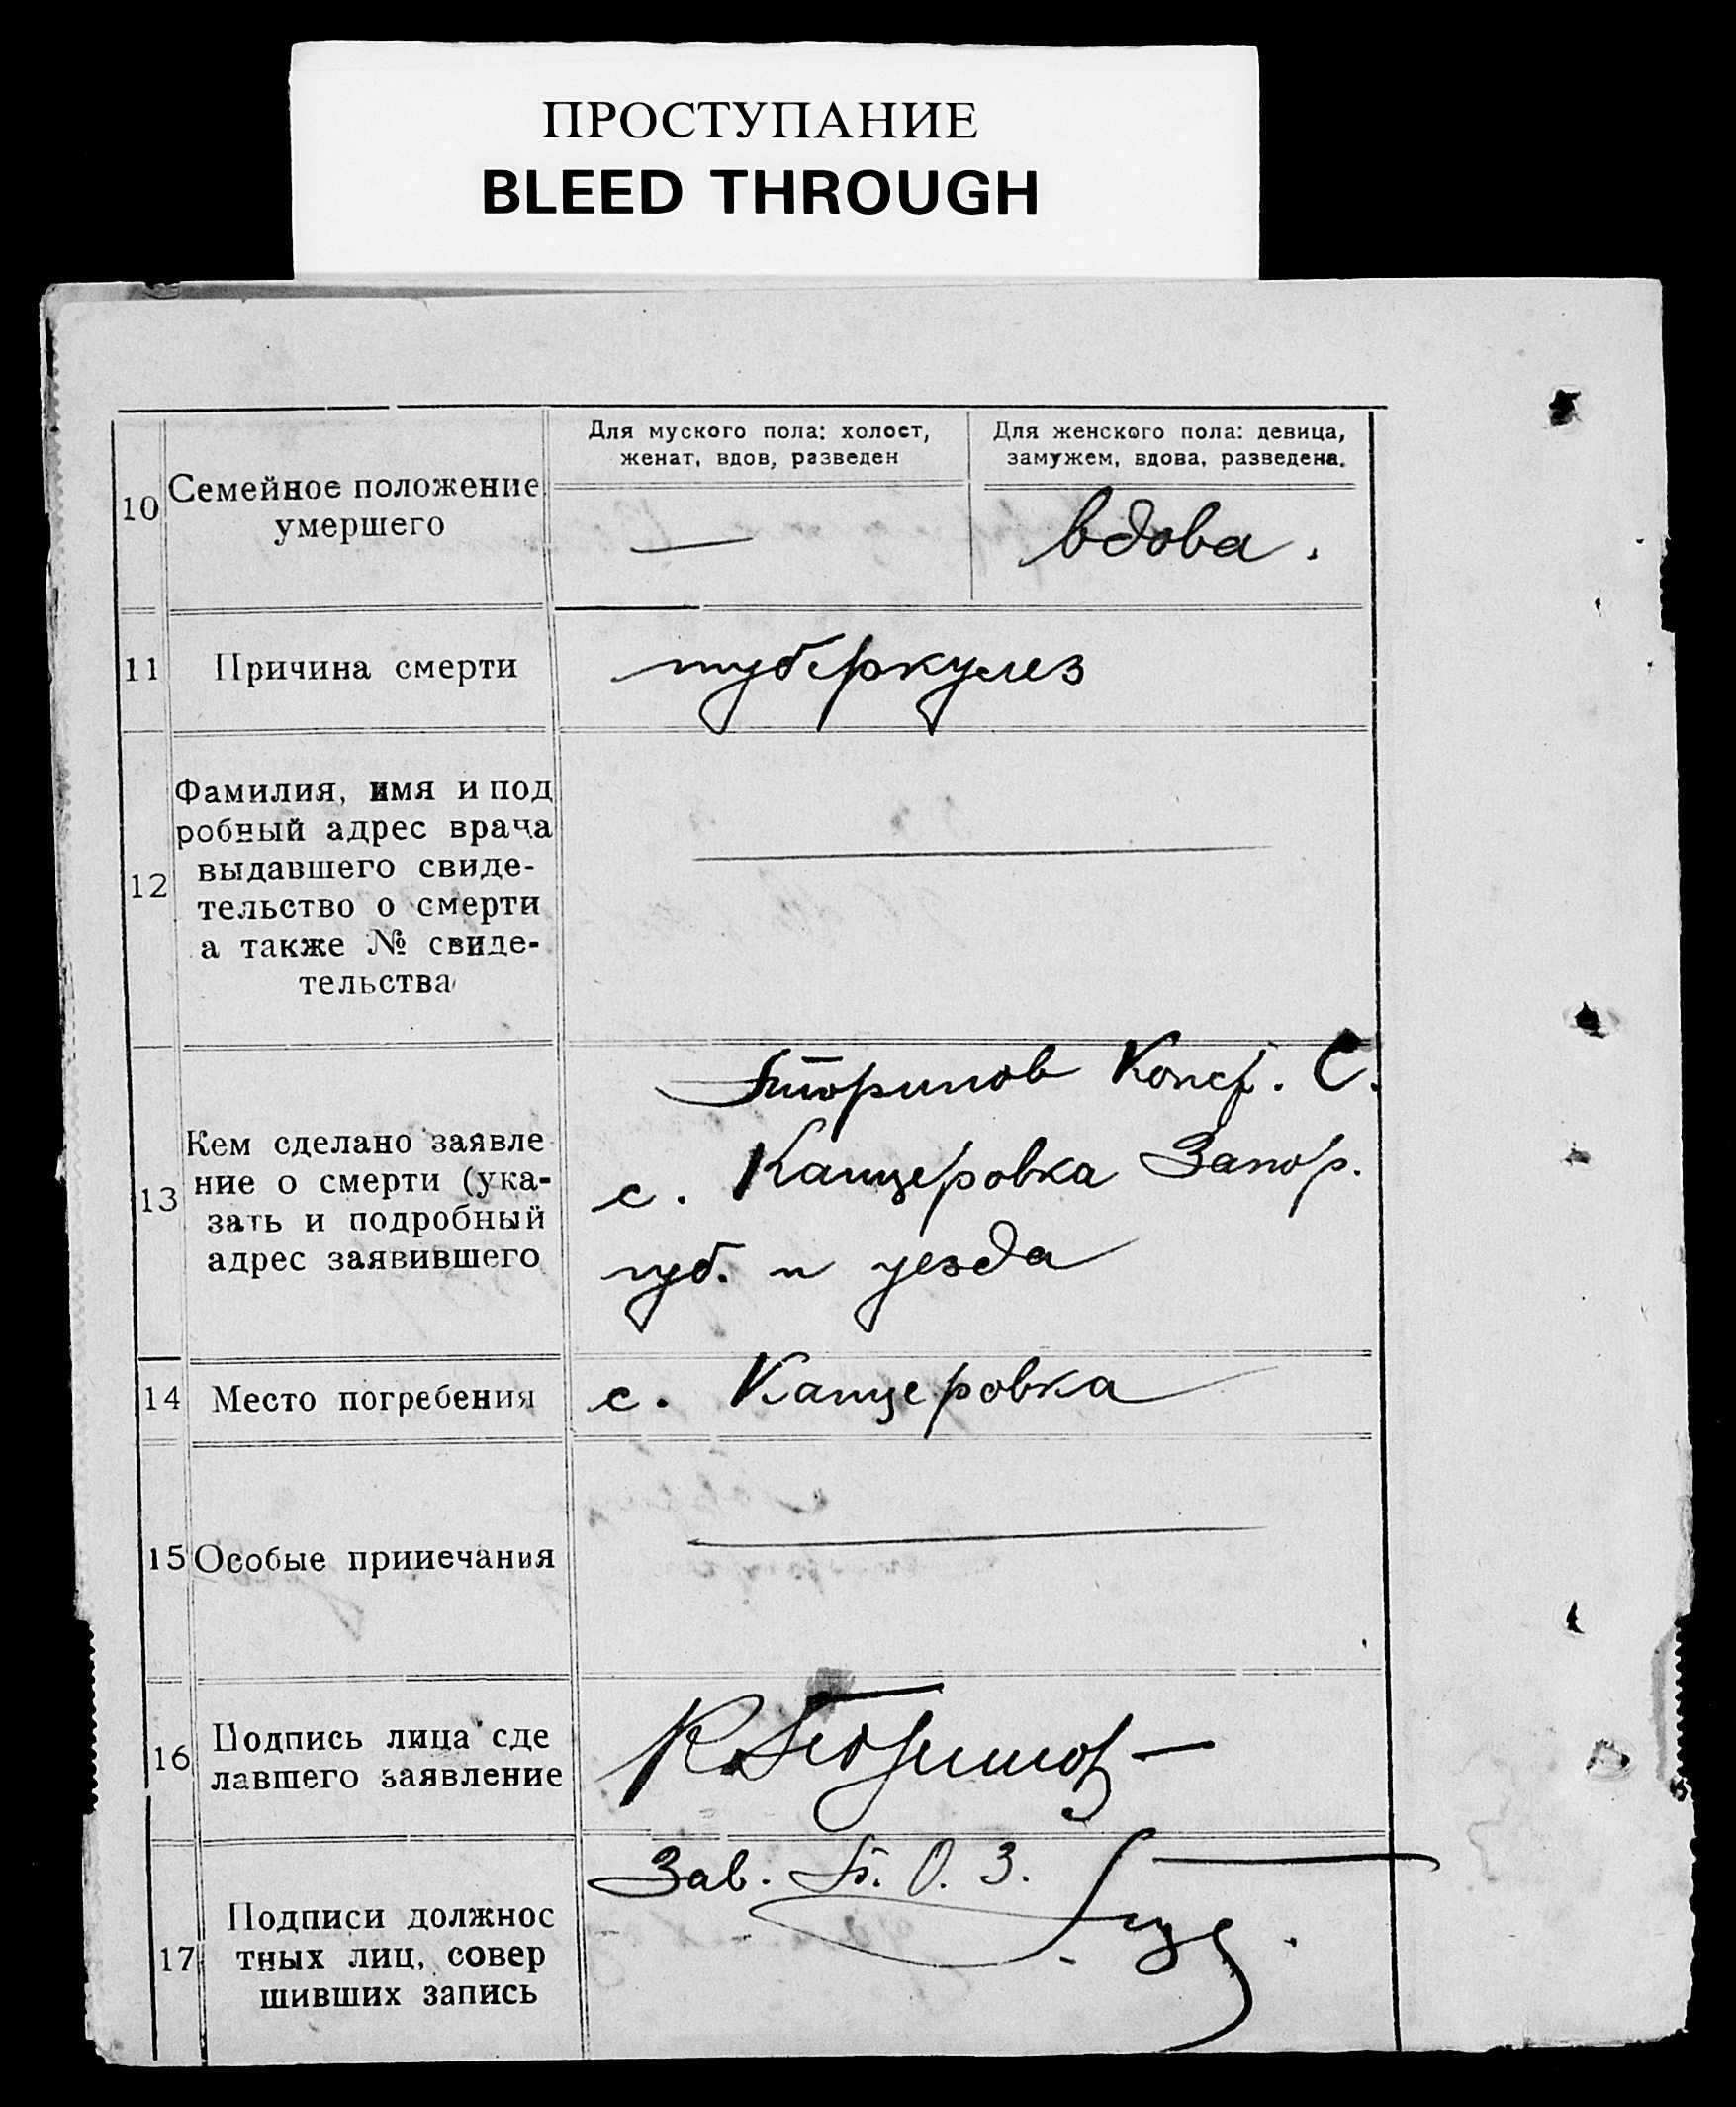 ПРОСТУПАНИЕ
BLEED THROUGH
10
Семейное положение
умершего
Для муского пола: холост,
женат, вдов, разведен
Для женского пола: девица,
замужем, вдова, разведена.
—
вдова.
11
Причина смерти
туберкулез
12
Фамилия, имя и под
робный адрес врача
выдавшего свиде-
тельство о смерти
а также № свиде-
тельства
13
Кем сделано заявле
ние о смерти (ука-
зать и подробный
адрес заявившего
С.
с. Канцеровка Запор.
губ. и уезда
14
Место погребения
с. Канцеровка
15
Особые прииечания
16
Подпись лица сде
лавшего заявление
К.
17
Подписи должнос
тных лиц, совер
шивших запись
Зав. Б. О. З.